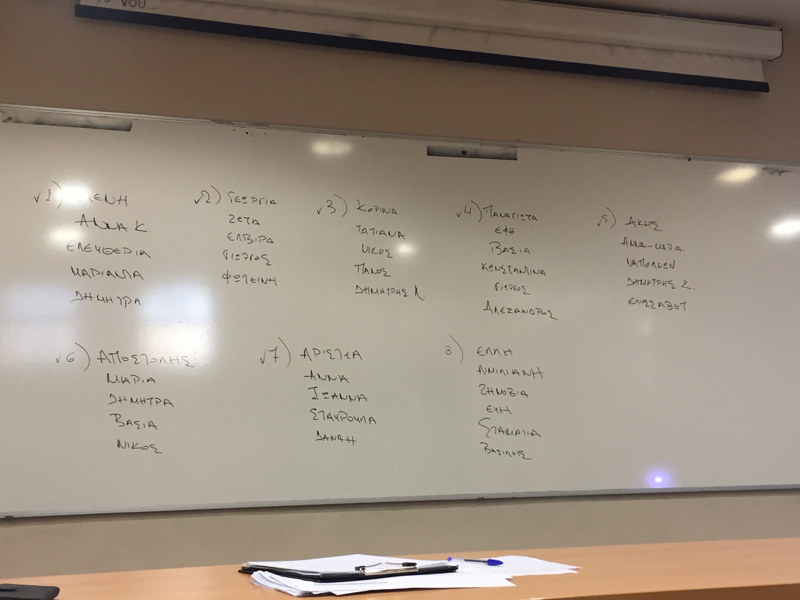 to you...
√1) ΕΛΕΝΗ
ΑΝΝΑ Κ
ΕΛΕΥΘΕΡΙΑ
ΜΑΡΙΑΝΝΑ
ΔΗΜΗΤΡΑ
√2) ΓΕΩΡΓΙΑ
ΖΕΤΑ
ΕΛΒΙΡΑ
ΓΙΩΡΓΟΣ
ΦΩΤΕΙΝΗ
√3) ΚΟΡΙΝΑ
ΤΑΤΙΑΝΑ
ΝΙΚΟΣ
ΠΑΝΟΣ
ΔΗΜΗΤΡΗΣ Λ.
√4) ΠΑΝΑΓΙΩΤΑ
ΕΦΗ
ΒΑΣΙΑ
ΚΩΝΣΤΑΝΤΙΝΑ
ΓΙΩΡΓΟΣ
ΑΛΕΞΑΝΔΡΟΣ
√5) ΑΚΗΣ
ΑΝΝΑ-ΜΑΡΙΑ
ΝΑΠΟΛΕΩΝ
ΔΗΜΗΤΡΗΣ Σ.
ΕΛΙΣΣΑΒΕΤ
√6) ΑΠΟΣΤΟΛΗΣ
ΜΑΡΙΑ
ΔΗΜΗΤΡΑ
ΒΑΣΙΑ
ΝΙΚΟΣ
√7) ΑΡΙΣΤΕΑ
ΑΝΝΑ
ΙΩΑΝΝΑ
ΣΤΑΥΡΟΥΛΑ
ΔΑΝΑΗ
8) ΕΛΛΗ
ΑΙΜΙΛΙΑΝΗ
ΖΗΝΟΒΙΑ
ΕΥΗ
ΣΤΑΜΑΤΙΑ
ΒΑΣΙΛΗΣ